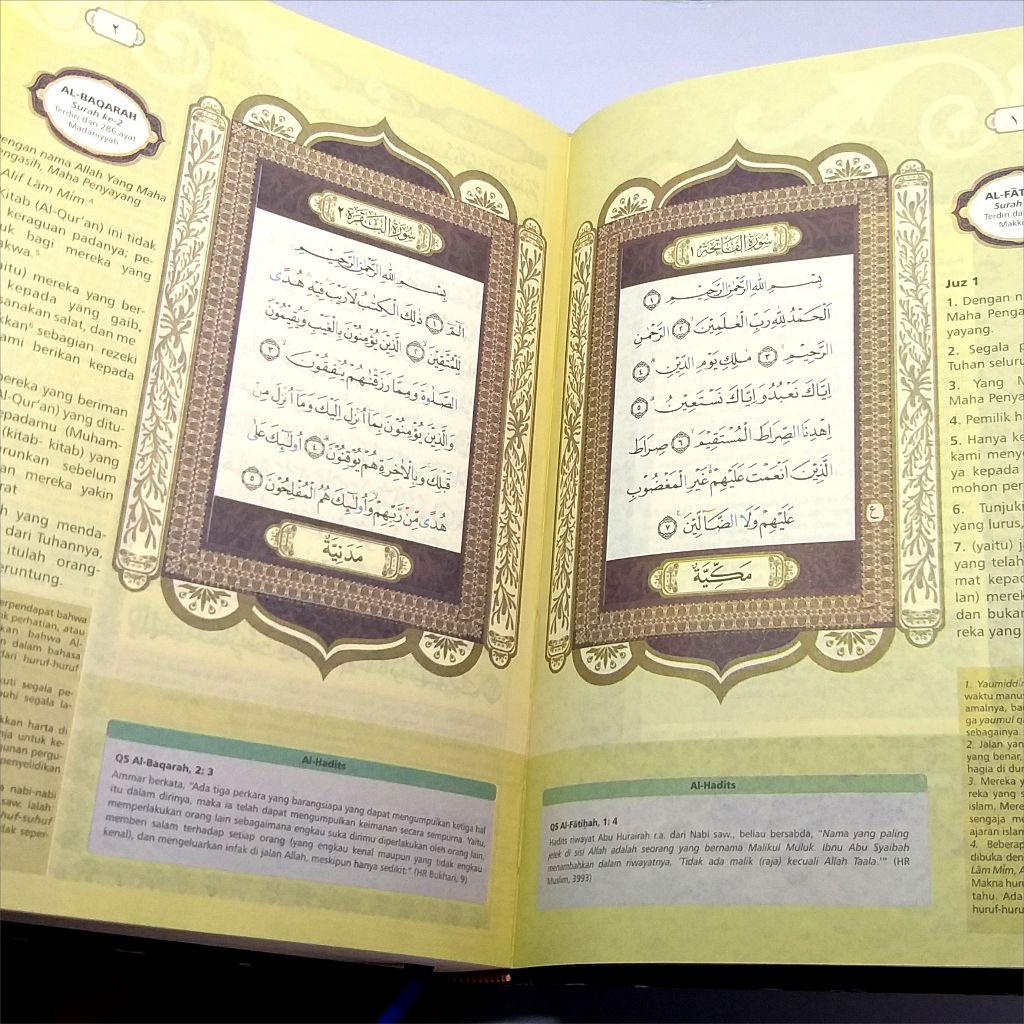 ١
AL-FĀT
Surah
Terdiri da
Makki
سُورَةُ الْفَاتِحَةِ ١
بِسْمِ اللهِ الرَّحْمٰنِ الرَّحِيْمِ ١
اَلْحَمْدُ لِلّٰهِ رَبِّ الْعٰلَمِيْنَ ٢ الرَّحْمٰنِ
الرَّحِيْمِ ٣ مٰلِكِ يَوْمِ الدِّيْنِ ٤
اِيَّاكَ نَعْبُدُ وَاِيَّاكَ نَسْتَعِيْنُ ٥
اِهْدِنَا الصِّرَاطَ الْمُسْتَقِيْمَ ٦ صِرَاطَ
الَّذِيْنَ اَنْعَمْتَ عَلَيْهِمْ غَيْرِ الْمَغْضُوْبِ
عَلَيْهِمْ وَلَا الضَّاۤلِّيْنَ ٧
ع
مَكِّيَّةٌ
Juz 1
1. Dengan n
Maha Penga
yayang.
2. Segala p
Tuhan selur
3. Yang M
Maha Penya
4. Pemilik h
5. Hanya ke
kami meny
ya kepada
mohon per
6. Tunjuk
yang lurus,
7. (yaitu) j
yang telah
mat kepac
lan) merek
dan bukar
reka yang
1. Yaumiddīn
waktu manus
amalnya, ba
ga yaumul q
sebagainya.
2. Jalan yan
yang benar,
hagia di dur
3. Mereka y
reka yang s
islam. Mere
sengaja me
ajaran islan
4. Beberap
dibuka den
Lām Mīm, A
Makna huru
tahu. Ada
huruf-huru
Al-Hadits
QS Al-Fātiḥah, 1: 4
Hadits riwayat Abu Hurairah r.a. dari Nabi saw., beliau bersabda, "Nama yang paling
jelek di sisi Allah adalah seorang yang bernama Malikul Muluk. Ibnu Abu Syaibah
menambahkan dalam riwayatnya, 'Tidak ada malik (raja) kecuali Allah Taala.'" (HR
Muslim, 3993)
٢
AL-BAQARAH
Surah ke-2
Terdiri dari 286 ayat
Madaniyyah
سُورَةُ الْبَقَرَةِ ٢
بِسْمِ اللهِ الرَّحْمٰنِ الرَّحِيْمِ
الۤمّۤ ١ ذٰلِكَ الْكِتٰبُ لَا رَيْبَ فِيْهِ هُدًى
لِّلْمُتَّقِيْنَ ٢ الَّذِيْنَ يُؤْمِنُوْنَ بِالْغَيْبِ وَيُقِيْمُوْنَ
الصَّلٰوةَ وَمِمَّا رَزَقْنٰهُمْ يُنْفِقُوْنَ ٣
وَالَّذِيْنَ يُؤْمِنُوْنَ بِمَآ اُنْزِلَ اِلَيْكَ وَمَآ اُنْزِلَ مِنْ
قَبْلِكَ وَبِالْاٰخِرَةِ هُمْ يُوْقِنُوْنَ ٤ اُولٰۤىِٕكَ عَلٰى
هُدًى مِّنْ رَّبِّهِمْ وَاُولٰۤىِٕكَ هُمُ الْمُفْلِحُوْنَ ٥
مَدَنِيَّةٌ
engan nama Allah Yang Maha
engasih, Maha Penyayang
Alif Lām Mīm.⁴
Kitab (Al-Qur'an) ini tidak
keraguan padanya; pe-
uk bagi mereka yang
akwa.⁵
aitu) mereka yang ber-
kepada yang gaib,
sanakan salat, dan me
kkan⁶ sebagian rezeki
ami berikan kepada
nereka yang beriman
Al-Qur'an) yang ditu-
padamu (Muham-
(kitab- kitab) yang
urunkan sebelum
an mereka yakin
rat
h yang menda-
dari Tuhannya,
itulah orang-
eruntung.
erpendapat bahwa
k perhatian, atau
kan bahwa Al-
n dalam bahasa
dari huruf-huruf
uti segala pe-
uhi segala la-
kkan harta di
nja untuk ke-
unan pergu-
penyelidikan
a nabi-nabi
saw. ialah
huf-suhuf
dak seper-
Al-Hadits
QS Al-Baqarah, 2: 3
Ammar berkata, "Ada tiga perkara yang barangsiapa yang dapat mengumpulkan ketiga hal
itu dalam dirinya, maka ia telah dapat mengumpulkan keimanan secara sempurna. Yaitu,
memperlakukan orang lain sebagaimana engkau suka dirimu diperlakukan oleh orang lain,
memberi salam terhadap setiap orang (yang engkau kenal maupun yang tidak engkau
kenal), dan mengeluarkan infak di jalan Allah, meskipun hanya sedikit." (HR Bukhari, 9)